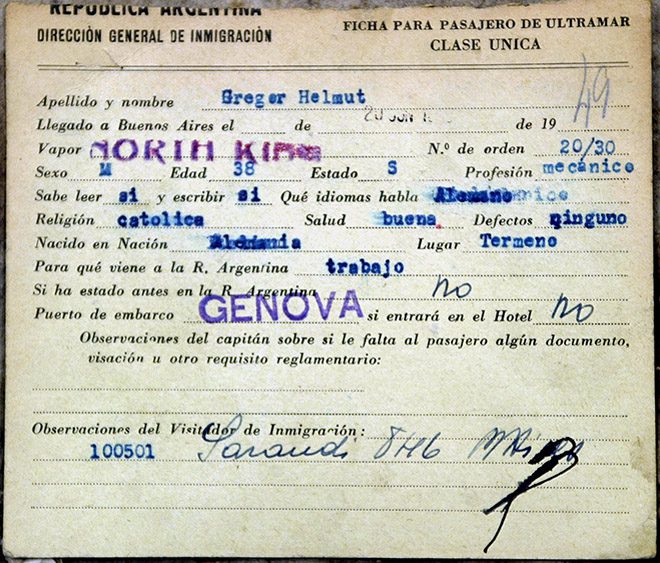 REPUBLICA ARGENTINA
DIRECCIÓN GENERAL DE INMIGRACIÓN
FICHA PARA PASAJERO DE ULTRAMAR
CLASE UNICA
49
Apellido y nombre Gregor Helmut
Llegado a Buenos Aires el 20 JUN de de 19
Vapor NORTH KING N.º de orden 20/30
Sexo M Edad 38 Estado S Profesión mecánico
Sabe leer si y escribir si Qué idiomas habla Alemano
Religión catolica Salud buena Defectos ninguno
Nacido en Nación Alemania Lugar Termeno
Para qué viene a la R. Argentina trabajo
Si ha estado antes en la R. Argentina no
Puerto de embarco GENOVA si entrará en el Hotel no
Observaciones del capitán sobre si le falta al pasajero algún documento,
visación u otro requisito reglamentario:
Observaciones del Visitador de Inmigración:
100501 Sarandi